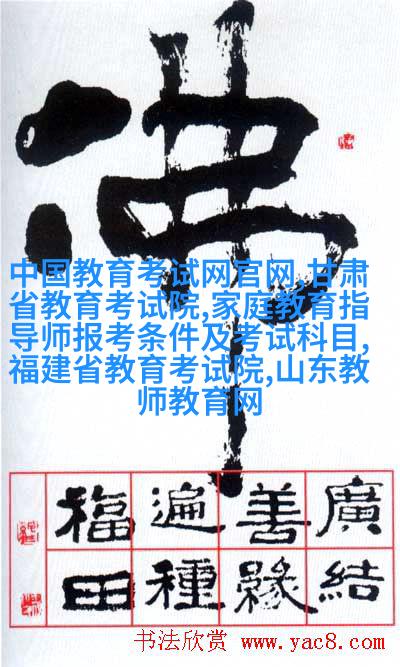 佛
中国教育考试网官网,甘肃
省教育考试院,家庭教育指
导师报考条件及考试科目,
福建省教育考试院,山东教
师教育网
廣結
善緣
遍種
福田
书法欣赏 www.yac8.com